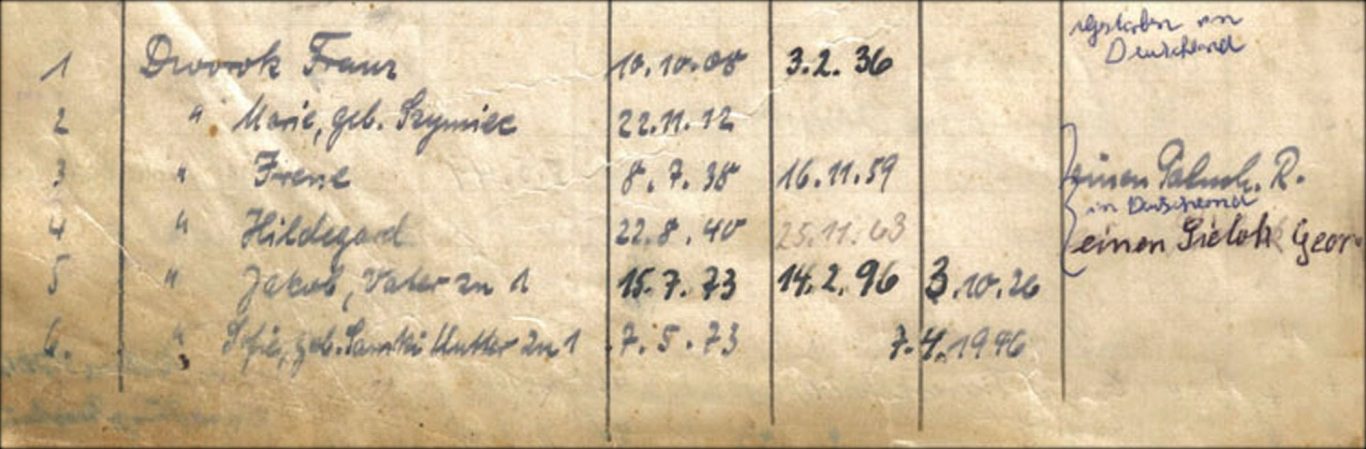 gestorben in
Deutschland
1 Dworok Franz 10.10.08 3.2.36
2 " Marie, geb. Szymiec 22.11.12
3 " Irene 8.7.38 16.11.59 einen R.
in Deutschland
4 " Hildegard 22.8.40 25.11.63 einen Sieloh Geor
5 " Jakob, Vater zu 1 15.7.73 14.2.96 3.10.26
6. " Sofie, geb. Mutter zu 1 7.5.73 7.4.1946